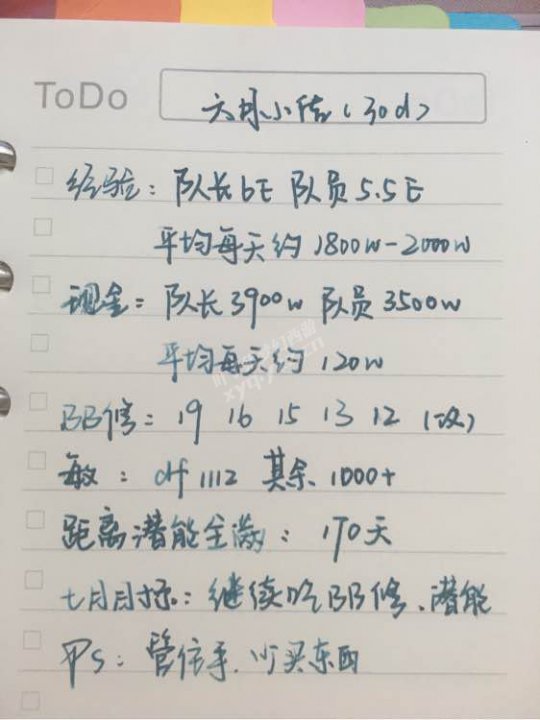 ToDo
六球小结(30d)
经验：队长6E 队员5.5E
平均每天约1800w-2000w
现金：队长3900w 队员3500w
平均每天约120w
BB修：19 16 15 13 12 (次)
敏：df 1112 其余1000+
距离潜能全满：170天
七月目标：继续吃BB修、潜能
PS：管住手,少买东西